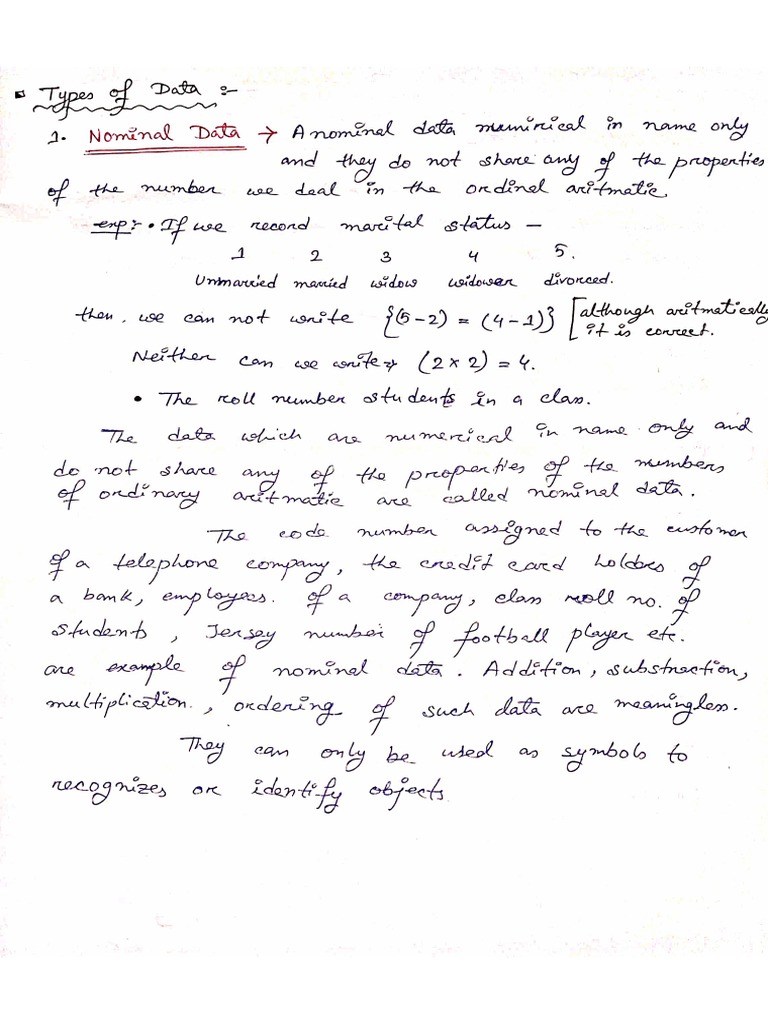 Types of Data :-
1. Nominal Data → A nominal data numirical in name only
and they do not share any of the properties
of the number we deal in the ordinal aritmatic
exp:- • If we record marital status –
1 2 3 4 5.
Unmarried married widow widower divorced.
then, we can not write {(5-2) = (4-1)} [although aritmatically
it is correct.
Neither can we write→ (2 x 2) = 4.
• The roll number students in a class.
The data which are numerical in name only and
do not share any of the properties of the numbers
of ordinary aritmatic are called nominal data.
The code number assigned to the customer
of a telephone company, the credit card holders of
a bank, employees. of a company, class roll no. of
students, Jersey number of football player etc.
are example of nominal data. Addition, substraction,
multiplication., ordering of such data are meaningless.
They can only be used as symbols to
recognizes or identify objects